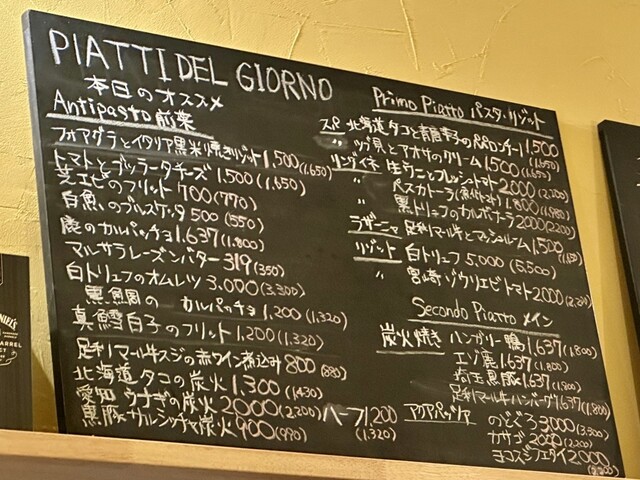 PIATTI DEL GIORNO
本日のオススメ
Antipasto 前菜
フォアグラとイタリア黒米焼きリゾット 1,500 (1,650)
トマトとブッラータチーズ 1,500 (1,650)
芝エビのフリット 700 (770)
白魚のブルスケッタ 500 (550)
鹿のカルパッチョ 1,637 (1,800)
マルサラレーズンバター 319 (350)
白トリュフのオムレツ 3,000 (3,300)
カルパッチョ 1,200 (1,320)
真鱈白子のフリット 1,200 (1,320)
足利マール牛スジの赤ワイン煮込み 800 (880)
北海道タコの炭火 1,300 (1,430)
愛知ウナギの炭火 2000 (2,200) ハーフ 1,200 (1,320)
黒豚サルシッチャ炭火 900 (990)
Primo Piatto パスタ・リゾット
スパ 北海道タコと青唐辛子のペペロンチーノ 1,500 (1,650)
〃 ツブ貝とアオサのクリーム 1,500 (1,650)
リングイネ 生ウニとフレッシュトマト 2000 (2,200)
〃 ペスカトーラ(魚介トマト) 1,800 (1,980)
〃 黒トリュフのカルボナーラ 2000 (2,200)
ラザーニャ 足利マール牛とマッシュルーム 1,500 (1,650)
リゾット 白トリュフ 5,000 (5,500)
〃 宮崎ゾウリエビトマト 2000 (2,200)
Secondo Piatto メイン
炭火焼き ハンガリー鴨 1,637 (1,800)
エゾ鹿 1,637 (1,800)
埼玉黒豚 1,637 (1,800)
足利マール牛ハンバーグ 1,637 (1,800)
アクアパッツァ のどぐろ 3,000 (3,300)
カサゴ 2000 (2,200)
ヨコスジフエダイ 2,000 (2,200)